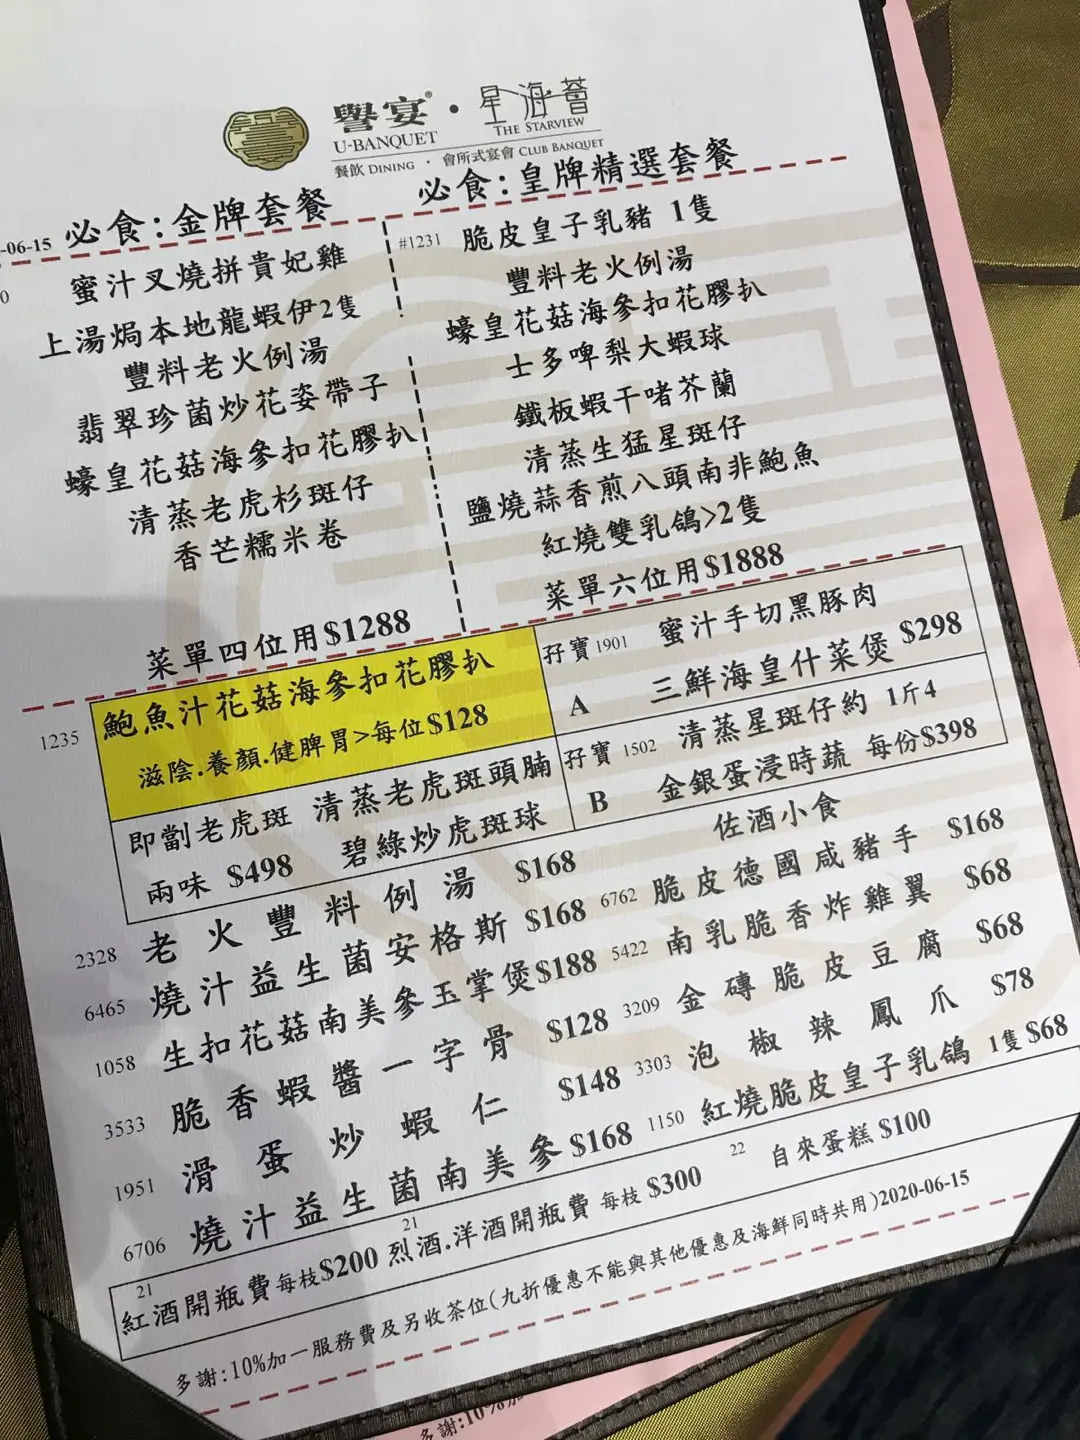 譽宴®・星海薈
U-BANQUET THE STARVIEW
餐飲 DINING ・ 會所式宴會 CLUB BANQUET
-06-15 必食:金牌套餐
0 蜜汁叉燒拼貴妃雞
上湯焗本地龍蝦伊2隻
豐料老火例湯
翡翠珍菌炒花姿帶子
蠔皇花菇海參扣花膠扒
清蒸老虎杉斑仔
香芒糯米卷
菜單四位用$1288
必食:皇牌精選套餐
#1231 脆皮皇子乳豬 1隻
豐料老火例湯
蠔皇花菇海參扣花膠扒
士多啤梨大蝦球
鐵板蝦干啫芥蘭
清蒸生猛星斑仔
鹽燒蒜香煎八頭南非鮑魚
紅燒雙乳鴿>2隻
菜單六位用$1888
1235 鮑魚汁花菇海參扣花膠扒
滋陰.養顏.健脾胃>每位$128
即劏老虎斑 清蒸老虎斑頭腩
兩味 $498 碧綠炒虎斑球
孖寶 1901 蜜汁手切黑豚肉
A 三鮮海皇什菜煲 $298
孖寶 1502 清蒸星斑仔約 1斤4
B 金銀蛋浸時蔬 每份$398
2328 老火豐料例湯 $168
6465 燒汁益生菌安格斯 $168
1058 生扣花菇南美參玉掌煲$188
3533 脆香蝦醬一字骨 $128
1951 滑蛋炒蝦仁 $148
6706 燒汁益生菌南美參 $168
佐酒小食
6762 脆皮德國咸豬手 $168
5422 南乳脆香炸雞翼 $68
3209 金磚脆皮豆腐 $68
3303 泡椒辣鳳爪 $78
1150 紅燒脆皮皇子乳鴿 1隻 $68
21 紅酒開瓶費 每枝$200 21 烈酒.洋酒開瓶費 每枝 $300 22 自來蛋糕 $100
多謝:10%加一服務費及另收茶位(九折優惠不能與其他優惠及海鮮同時共用)2020-06-15
多謝:10%加